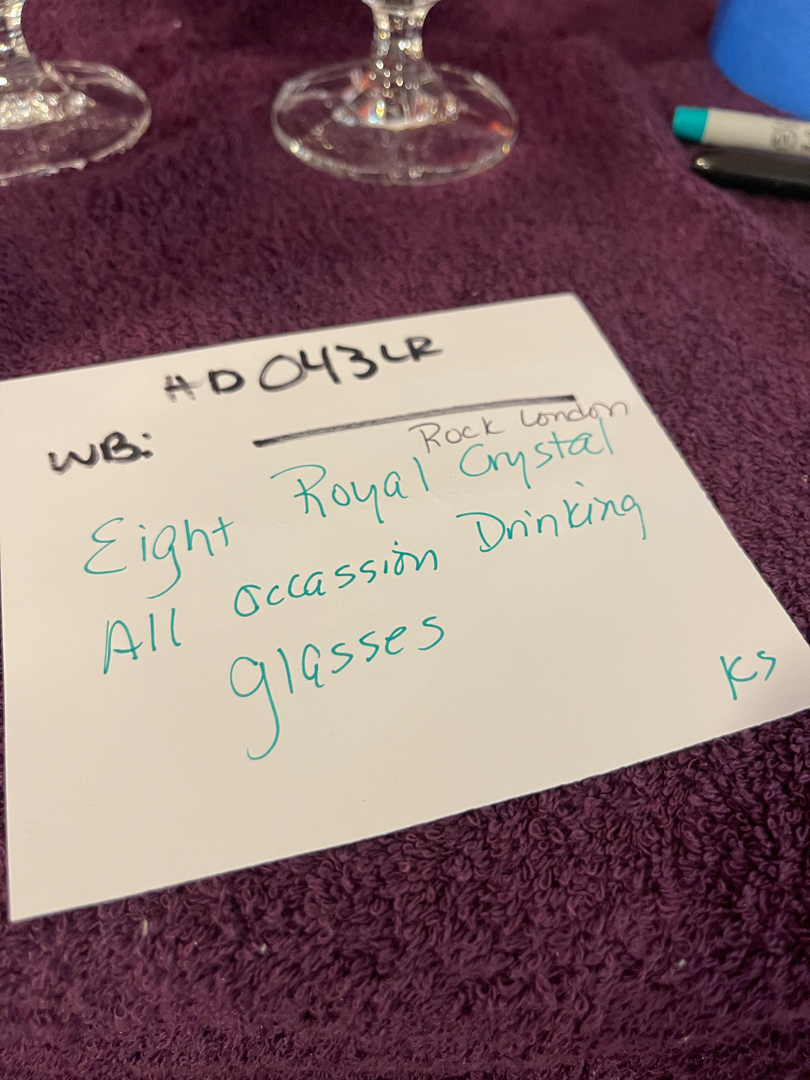 HD043LR
WB:
Rock London
Eight Royal Crystal
All occassion Drinking
glasses
KS